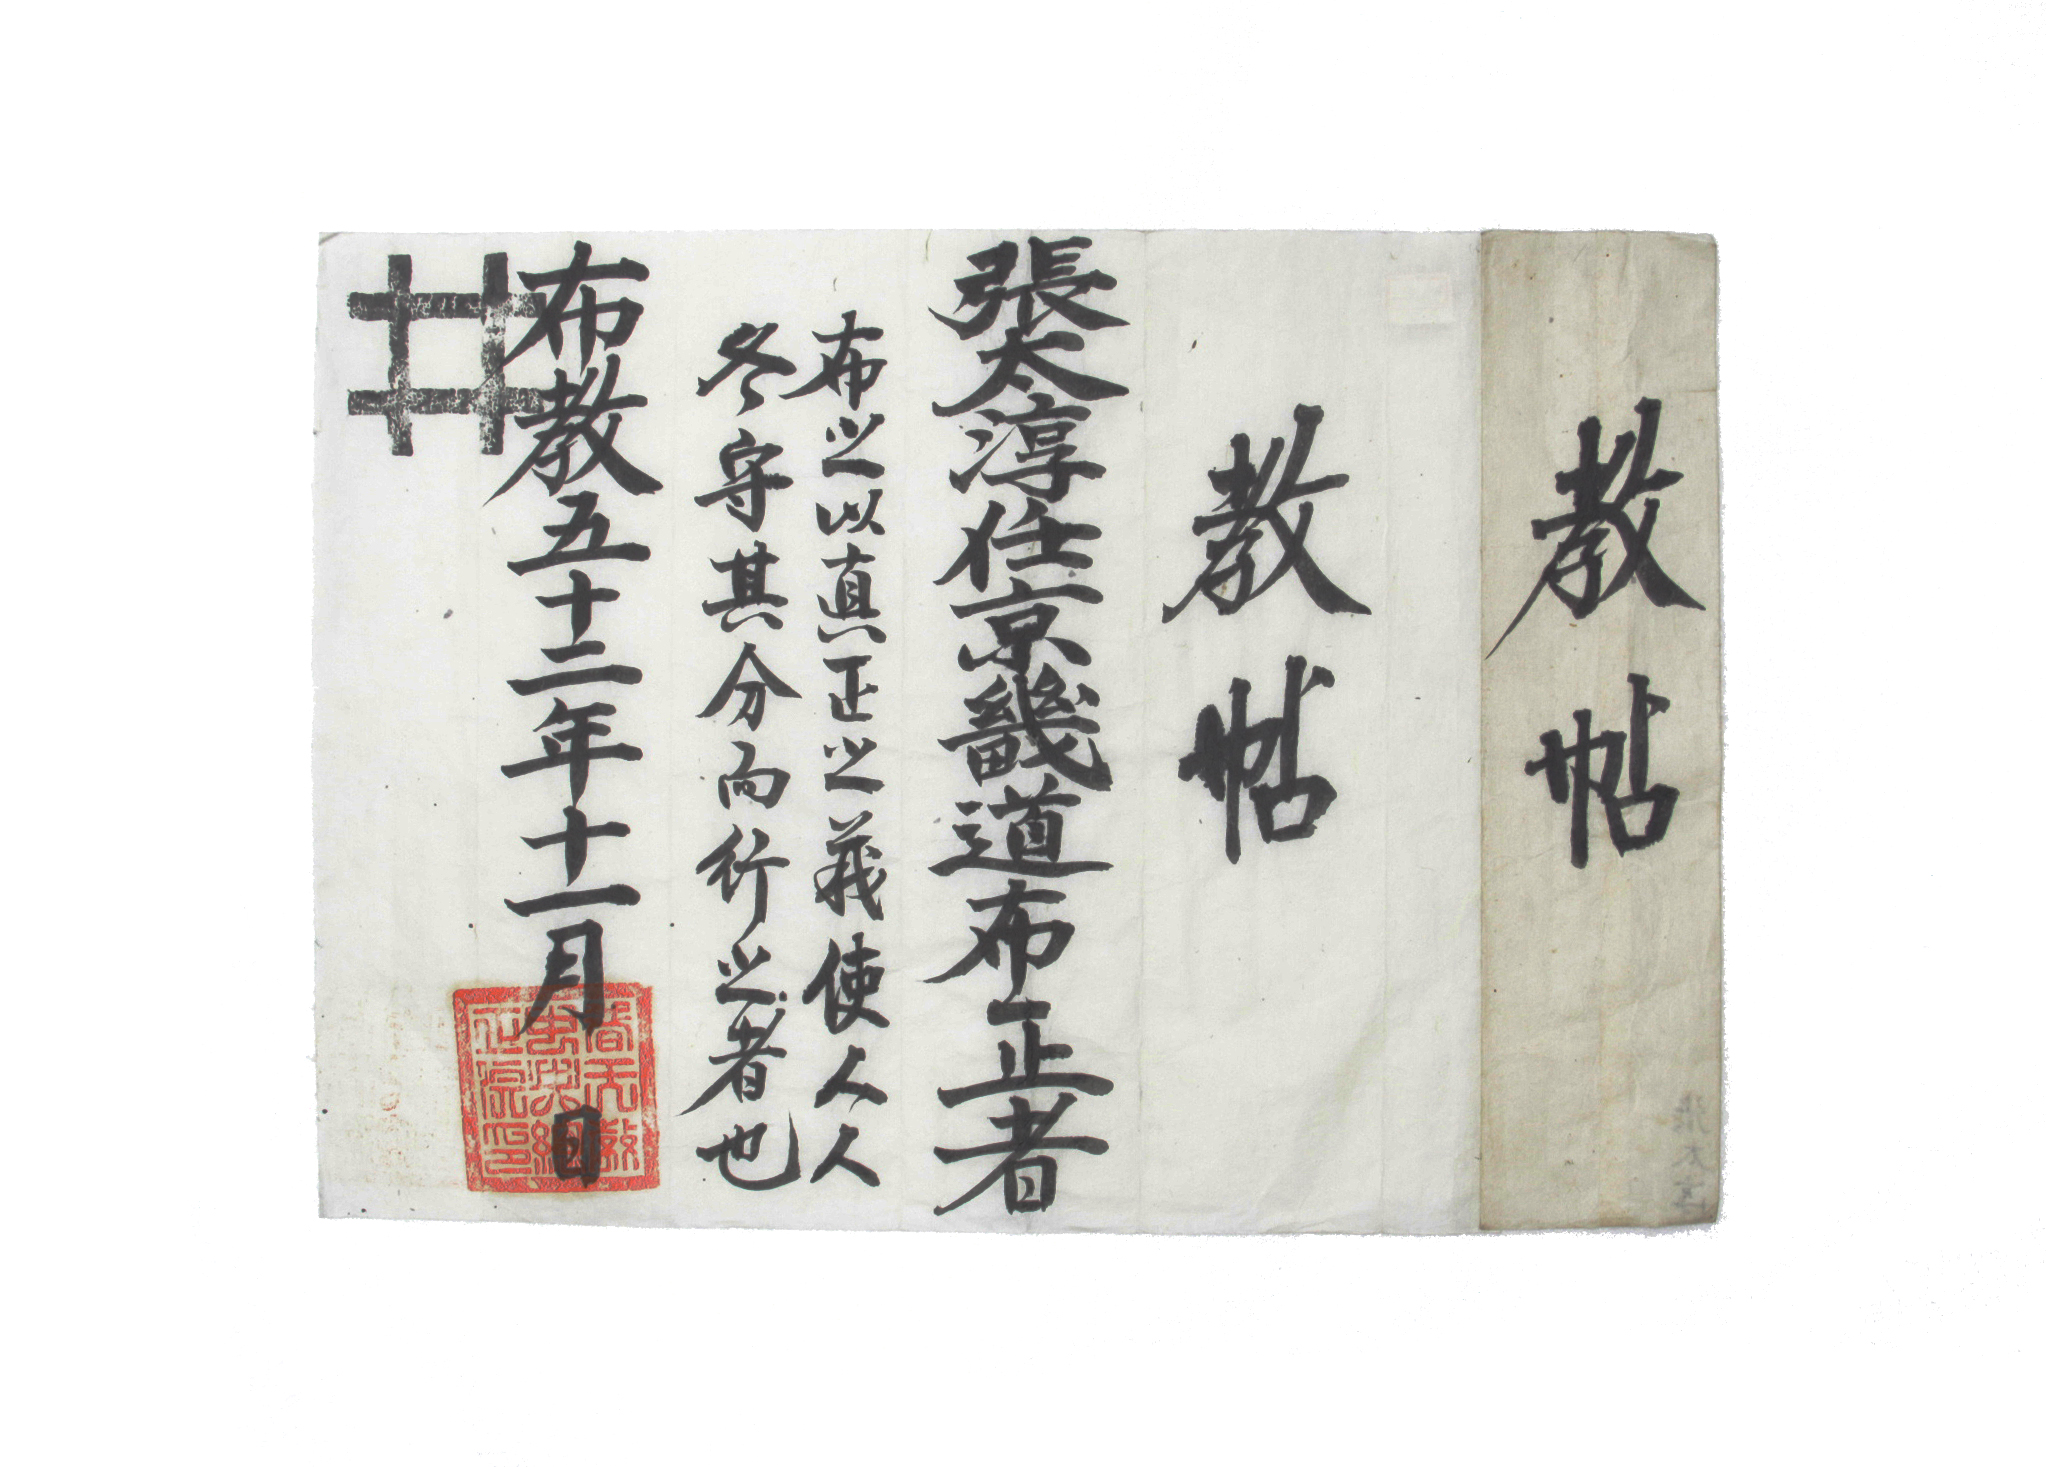 教帖
教帖
張太淳任京畿道布正者
布之以真正之義使人人
各守其分而行之者也
布教五十二年十一月 日